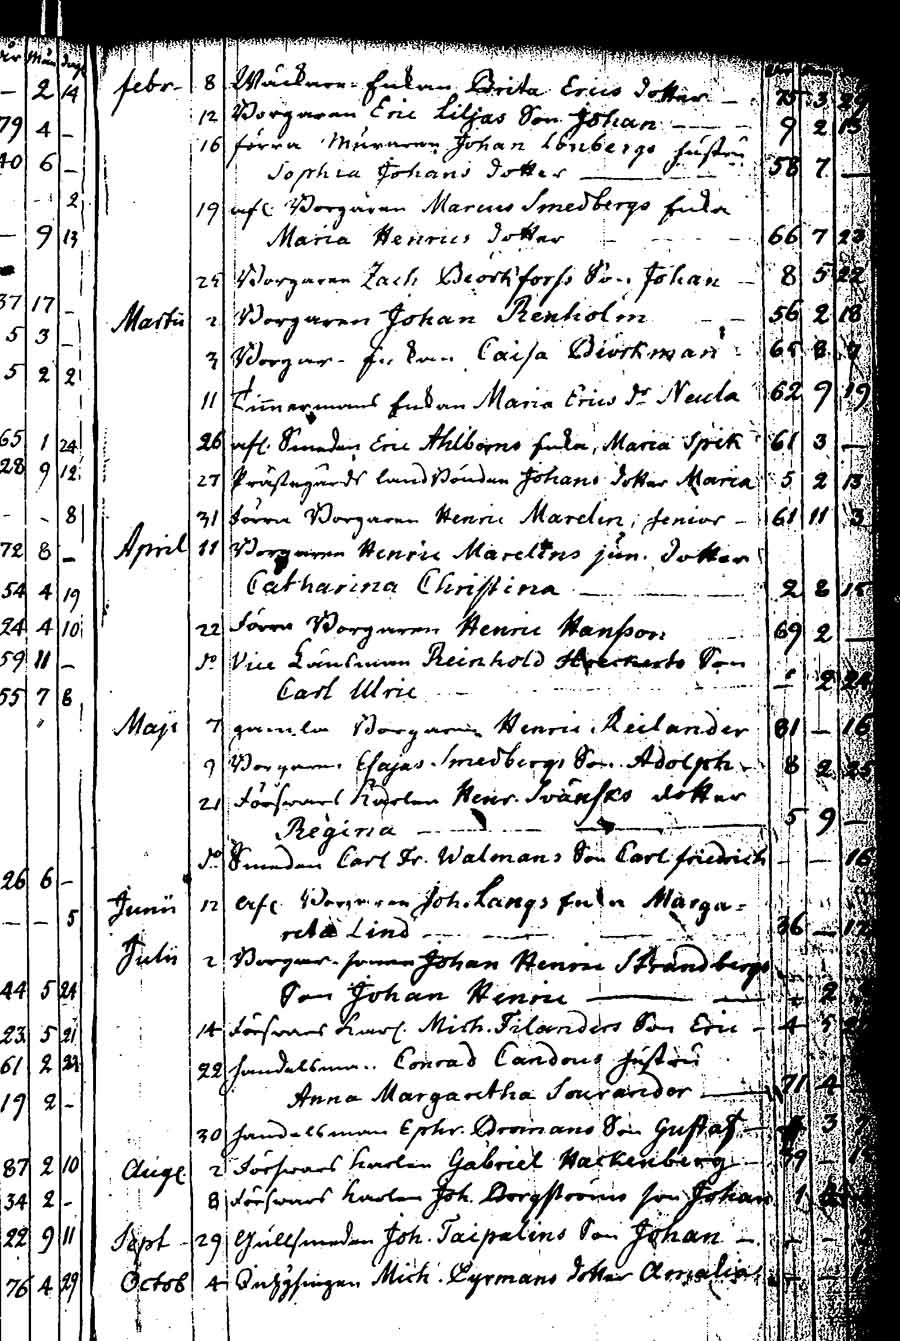 år Mån dag
2 14 febr. 8 Enkan Brita Erics dotter 75 3 29
79 4 - 12 Borgaren Eric Liljas Son Johan 9 2 13
40 6 - 16 förra Muraren Johan Lönbergs hustru
Sophia Johans dotter 58 7 -
2 19 afl. Borgaren Marcus Smedbergs Enka
9 13 Maria Henrics dotter 66 7 23
25 Borgaren Zach Biörkforss Son Johan 8 5 22
37 17 - Martii 2 Borgaren Johan Renholm 56 2 18
5 3 - 3 Borgar-Enkan Caisa Biörkman 65 8 7
5 2 2 11 Timmermans Enkan Maria Erics dr 62 9 19
65 1 24 26 afl. Smeden Eric Ahlboms Enka, Maria Spik 61 3 -
28 9 12 27 Prästegårds landbonden Johans dotter Maria 5 2 13
- - 8 31 förra Borgaren Henric Marelin, senior 61 11 3
72 8 - April 11 Borgaren Henric Marelins jun. dotter
54 4 19 Catharina Christina 2 8 15
24 4 10 22 förra Borgaren Henric Hansson 69 2 -
59 11 - do Vice Länsman Reinhold Son
55 7 8 Carl Ulric - 2 24
Maji 7 gamla Borgaren Henric Reilander 81 - 16
9 Borgaren Esajas Smedbergs Son Adolph 8 2 25
21 Försvars Karlen Henr. Svänsks dotter
Regina 5 9 -
do Smeden Carl Fr. Walmans Son Carl friedrich - - 16
26 6 -
- - 5 Junii 12 afl. Borgaren Joh. Langs Enka Marga=
reta Lind 36 - 12
Julii 2 Borgar-sonen Johan Henric Strandbergs
44 5 24 Son Johan Henric - 2
23 5 21 14 Försvars Karl. Mich. Filanders Son Eric 4 5
61 2 22 handelsman Conrad Candous hustru
19 2 - Anna Margaretha Sourander 71 4
30 handelsman Ephr. Son Gustaf 3 7
87 2 10 Aug. 2 Försvars Karlen Gabriel Hackenberg
34 2 - 8 Försvars Karlen Joh. Borgströms son Johan 1
22 9 11 Sept 29 Gullsmeden Joh. Taipalins Son Johan - -
76 4 29 Octob 4 Mich. Lyrmans dotter Amalia